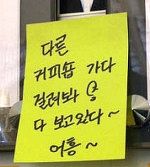 다른
커피숍 가다
걸려봐
다 보고있다~
어흥~